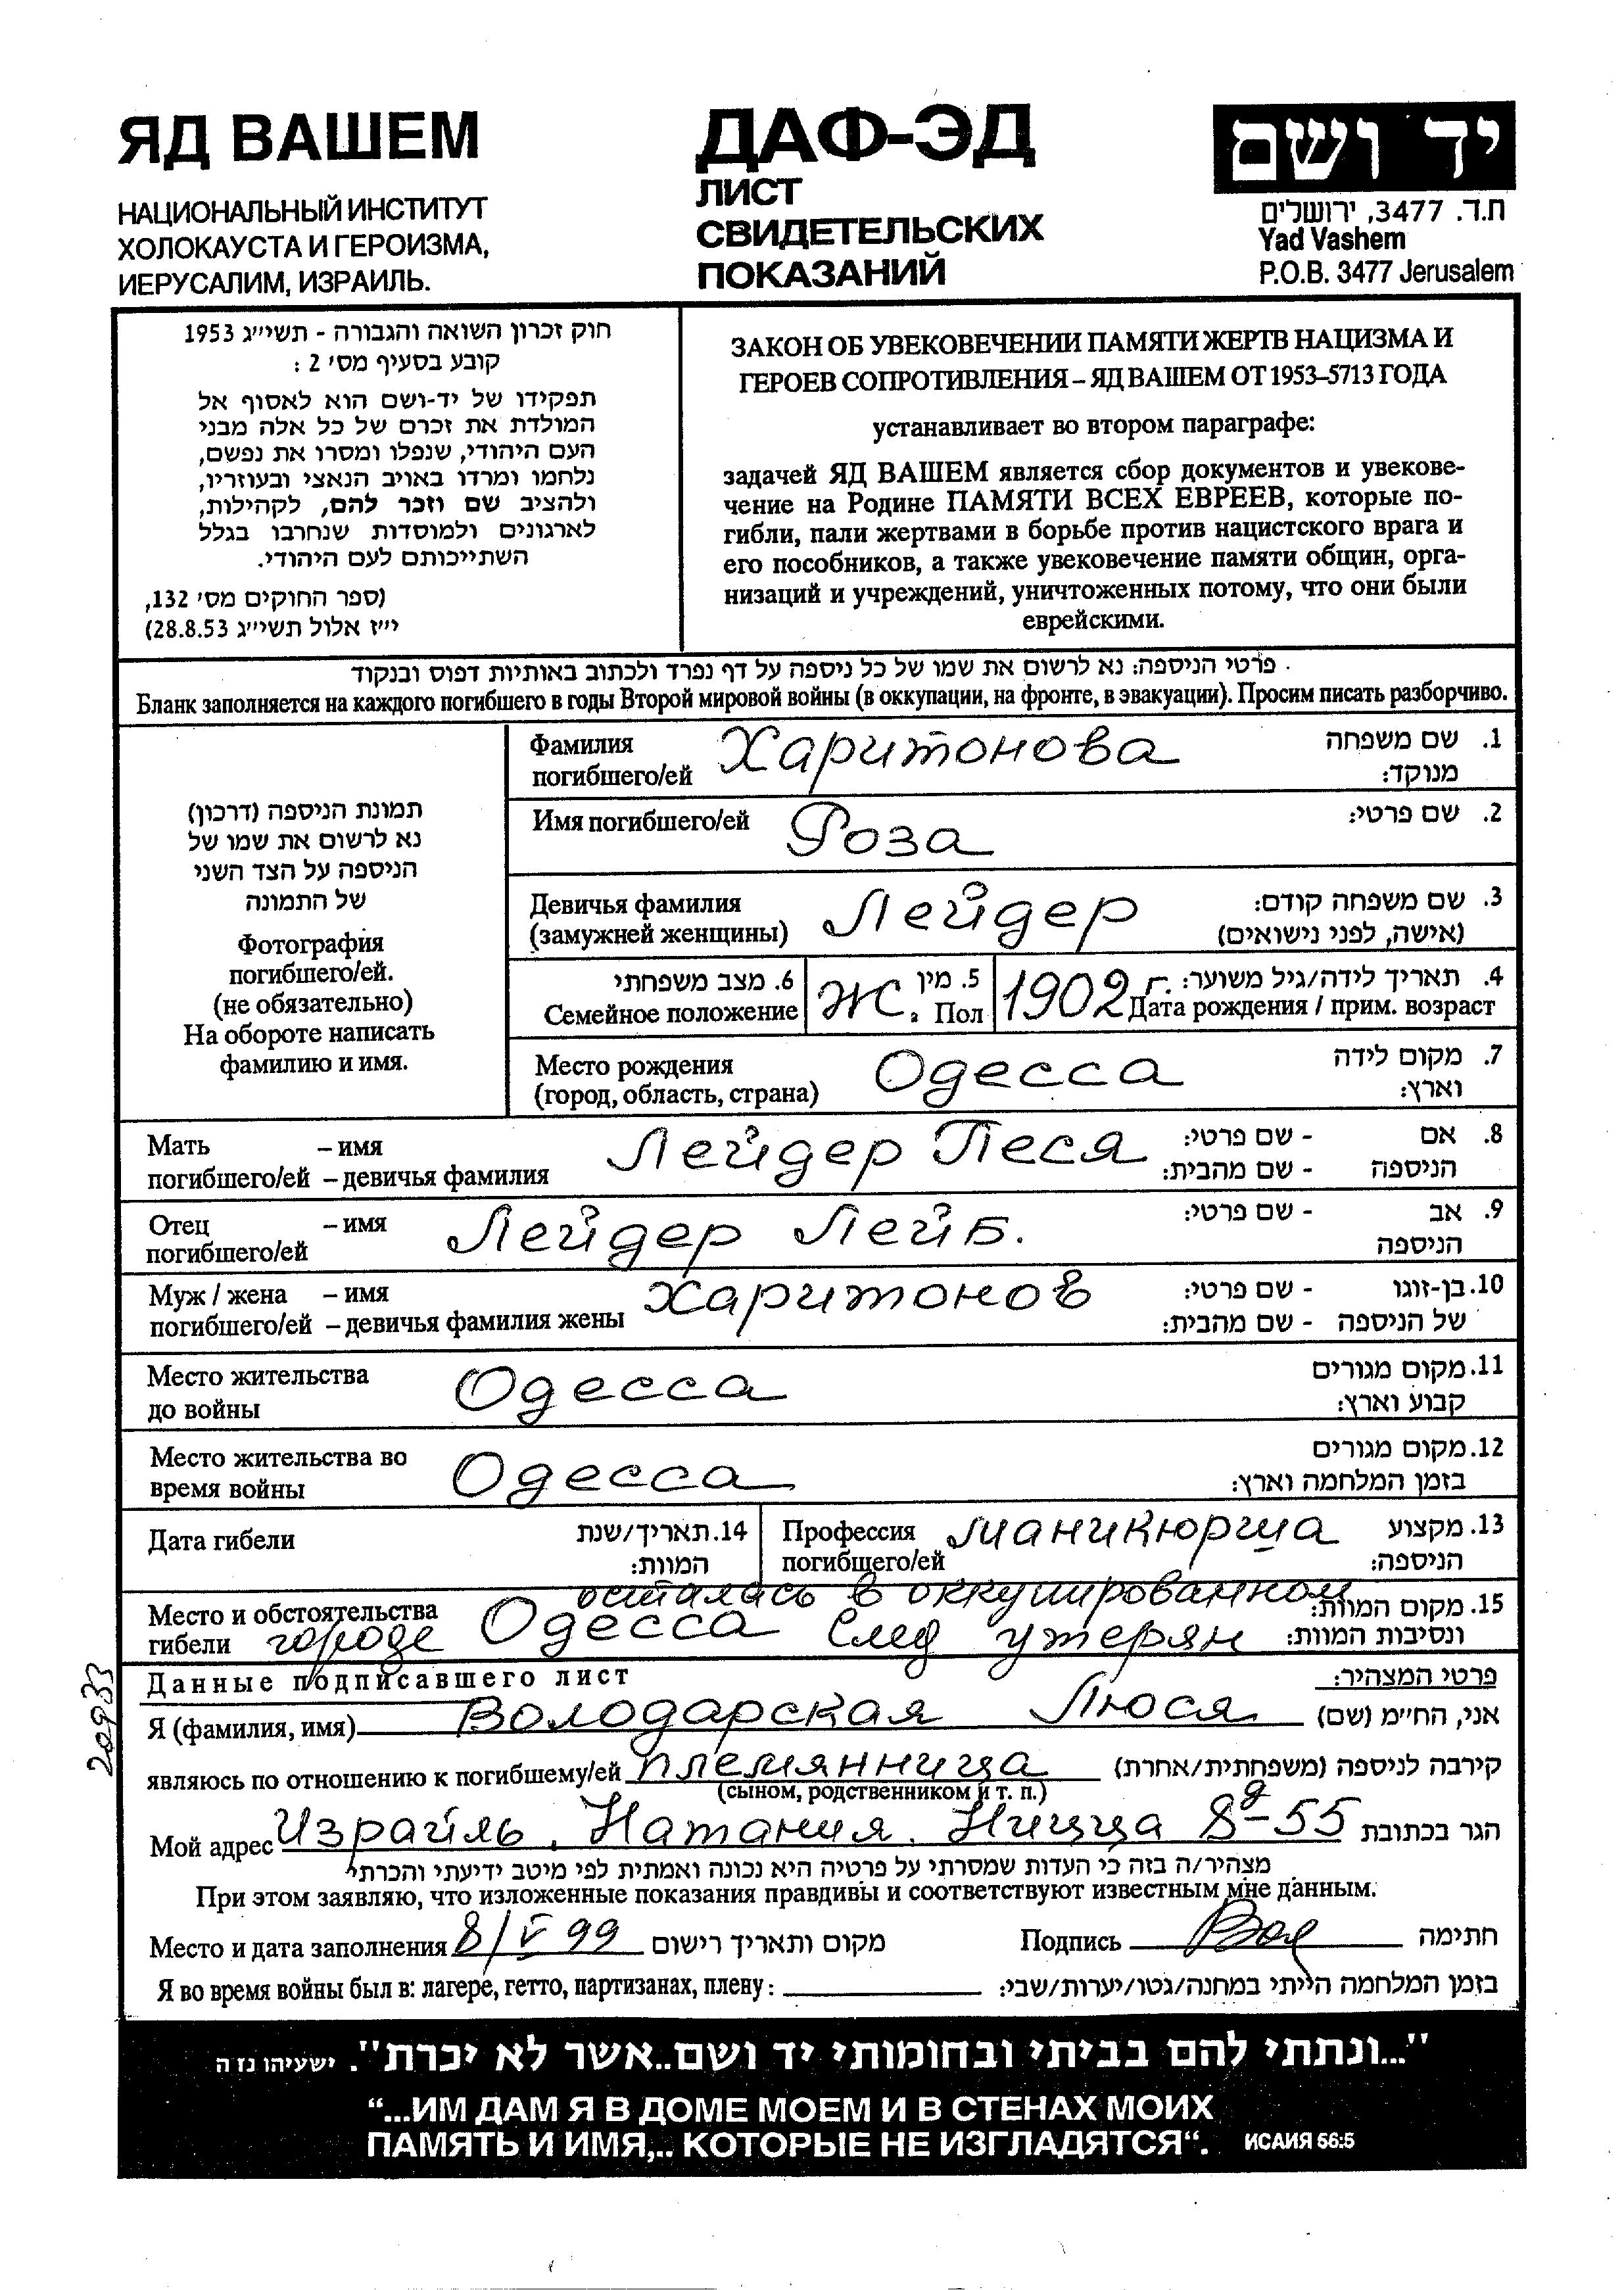 ЯД ВАШЕМ
НАЦИОНАЛЬНЫЙ ИНСТИТУТ
ХОЛОКАУСТА И ГЕРОИЗМА,
ИЕРУСАЛИМ, ИЗРАИЛЬ.
ДАФ-ЭД
ЛИСТ
СВИДЕТЕЛЬСКИХ
ПОКАЗАНИЙ
יד ושם
ת.ד. 3477, ירושלים
Yad Vashem
P.O.B. 3477 Jerusalem
חוק זכרון השואה והגבורה - תשי״ג 1953
קובע בסעיף מס׳ 2 :
תפקידו של יד-ושם הוא לאסוף אל
המולדת את זכרם של כל אלה מבני
העם היהודי, שנפלו ומסרו את נפשם,
נלחמו ומרדו באויב הנאצי ובעוזריו,
ולהציב שם וזכר להם, לקהילות,
לארגונים ולמוסדות שנחרבו בגלל
השתייכותם לעם היהודי.
(ספר החוקים מס׳ 132,
י״ז אלול תשי״ג 28.8.53)
ЗАКОН ОБ УВЕКОВЕЧЕНИИ ПАМЯТИ ЖЕРТВ НАЦИЗМА И
ГЕРОЕВ СОПРОТИВЛЕНИЯ – ЯД ВАШЕМ ОТ 1953–5713 ГОДА
устанавливает во втором параграфе:
задачей ЯД ВАШЕМ является сбор документов и увекове-
чение на Родине ПАМЯТИ ВСЕХ ЕВРЕЕВ, которые по-
гибли, пали жертвами в борьбе против нацистского врага и
его пособников, а также увековечение памяти общин, орга-
низаций и учреждений, уничтоженных потому, что они были
еврейскими.
פרטי הניספה: נא לרשום את שמו של כל ניספה על דף נפרד ולכתוב באותיות דפוס ובנקוד
Бланк заполняется на каждого погибшего в годы Второй мировой войны (в оккупации, на фронте, в эвакуации). Просим писать разборчиво.
תמונת הניספה (דרכון)
נא לרשום את שמו של
הניספה על הצד השני
של התמונה
Фотография
погибшего/ей.
(не обязательно)
На обороте написать
фамилию и имя.
Фамилия Харитонова 1. שם משפחה
погибшего/ей מנוקד:
Имя погибшего/ей Роза 2. שם פרטי:
Девичья фамилия Лейдер 3. שם משפחה קודם:
(замужней женщины) (אישה, לפני נישואים)
6. מצב משפחתי 5. מין 4. תאריך לידה/גיל משוער:
Семейное положение Ж. Пол 1902 г. Дата рождения / прим. возраст
Место рождения Одесса 7. מקום לידה
(город, область, страна) וארץ:
Мать – имя Лейдер Песя 8. אם - שם פרטי:
погибшего/ей – девичья фамилия הניספה - שם מהבית:
Отец – имя Лейдер Лейб. 9. אב - שם פרטי:
погибшего/ей הניספה
Муж / жена – имя Харитонов 10. בן-זוגו - שם פרטי:
погибшего/ей – девичья фамилия жены של הניספה - שם מהבית:
Место жительства Одесса 11. מקום מגורים
до войны קבוע וארץ:
Место жительства во Одесса 12. מקום מגורים
время войны בזמן המלחמה וארץ:
Дата гибели 14. תאריך/שנת המוות:
Профессия Маникюрша 13. מקצוע
погибщего/ей הניספה:
осталась в оккупированном
Место и обстоятельства 15. מקום המוות:
гибели городе Одесса След утерян ונסיבות המוות:
20933
Данные подписавшего лист פרטי המצהיר:
Я (фамилия, имя) Володарская Люся אני, החי״מ (שם)
являюсь по отношению к погибшему/ей племянница קירבה לניספה (משפחתית/אחרת)
(сыном, родственником и т. п.)
Мой адрес Израйль, Натания, Ницца 8д-55 הגר בכתובת
מצהיר/ה בזה כי העדות שמסרתי על פרטיה היא נכונה ואמתית לפי מיטב ידיעתי והכרתי
При этом заявляю, что изложенные показания правдивы и соответствуют известным мне данным.
Место и дата заполнения 8/V 99 מקום ותאריך רישום Подпись Вол חתימה
Я во время войны был в: лагере, гетто, партизанах, плену: בזמן המלחמה הייתי במחנה/גטו/יערות/שבי:
"...ונתתי להם בביתי ובחומותי יד ושם..אשר לא יכרת". ישעיהו נז ה
“...ИМ ДАМ Я В ДОМЕ МОЕМ И В СТЕНАХ МОИХ
ПАМЯТЬ И ИМЯ,.. КОТОРЫЕ НЕ ИЗГЛАДЯТСЯ“. ИСАИЯ 56:5